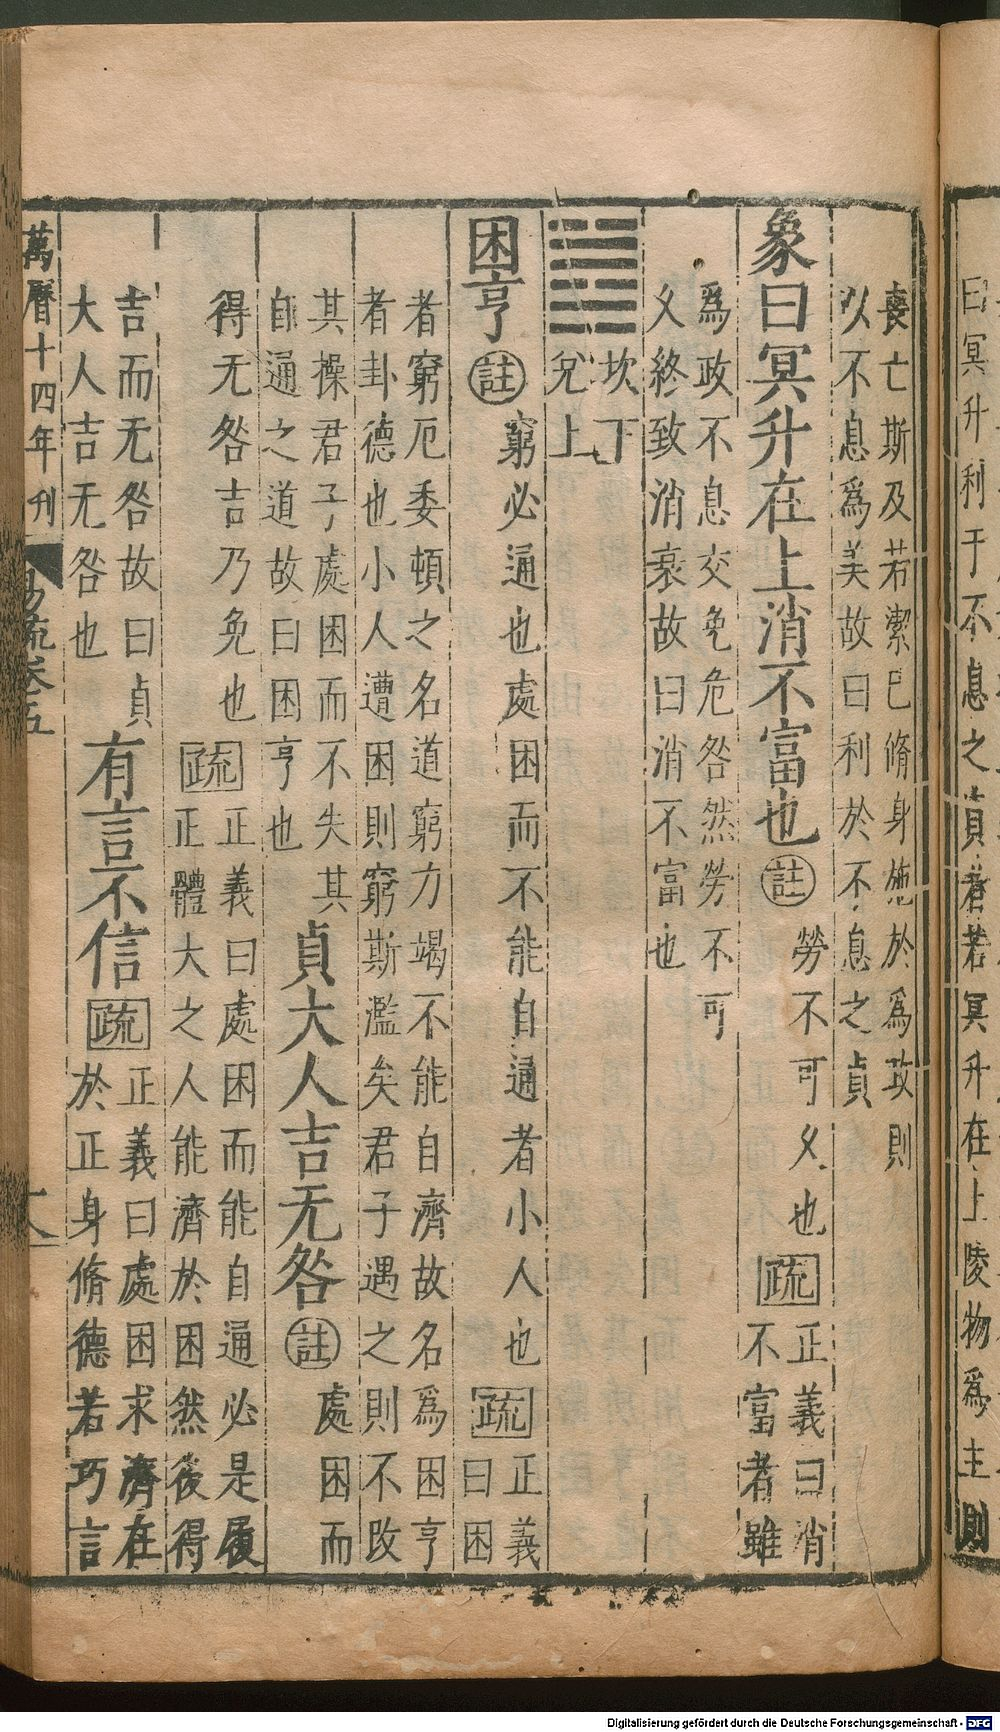 曰冥升利于不息之貞者若冥升在上陵物爲主則
喪亡斯及若潔已脩身施於爲政則
以不息爲美故曰利於不息之貞
象曰冥升在上消不富也
註
勞不可乂也
疏
正義曰消
不富者雖
爲政不息交免危咎然勞不可
乂終致消衰故曰消不富也
坎下
兌上
困亨
註
窮必通也處困而不能自通者小人也
疏
正義
曰困
者窮厄委頓之名道窮力竭不能自濟故名爲困亨
者卦德也小人遭困則窮斯濫矣君子遇之則不改
其操君子處困而不失其
自通之道故曰困亨也
貞大人吉无咎
註
處困而
得无咎吉乃免也
疏
正義曰處困而能自通必是履
正體大之人能濟於困然後得
吉而无咎故曰貞
大人吉无咎也
有言不信
疏
正義曰處困求濟在
於正身脩德若巧言
萬曆十四年刊
易疏卷五
Digitalisierung gefördert durch die Deutsche Forschungsgemeinschaft - DFG